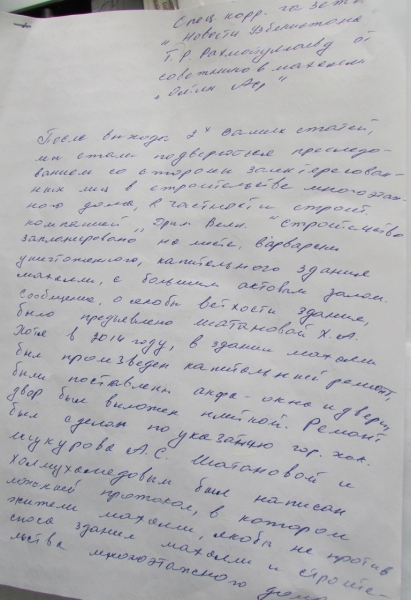 Спец. корр. газеты
"Новости Узбекистана"
Т. Р. Рахматуллаеву от
советников махалли
После выхода 2х Ваших статей,
мы стали подвергаться преследо-
ванием со стороны заинтересован-
ных лиц в строительстве многоэтаж-
ного дома, в частности строит.
компанией "Прам Велл". Строительство
запланировано на месте, варварски
уничтоженного, капительного здания
махалли, с большим актовым залом.
Сообщение, о якобы ветхости здания,
было предъявлено Шатановой Х. А.
Хотя в 2016 году, в здании махалли
был произведен капительный ремонт,
были поставлены акфа-окна и двери,
двор был выложен плиткой. Ремонт
был сделан по указанию гор. хок.
Шукурова А. С. Шатановой и
Холмухамедовым был написан
лживый протокол, в котором
жители махалли, якобы не против
сноса здания махалли и строите-
льства многоэтажного дома